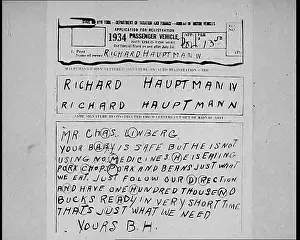 STATE OF NEW YORK - DEPARTMENT OF TAXATION AND FINANCE - BUREAU OF MOTOR VEHICLES
APPLICATION FOR REGISTRATION
1934 PASSENGER VEHICLE,
RICHARD HAUPTMANN
RICHARD HAUPTMANN
RICHARD HAUPTMANN
MR. CHAS. LINBERG
YOUR BABY IS SAFE BUT HE IS NOT
USING NO MEDICINES HE IS EATING
PORK CHOP PORK AND BEANS JUST WHAT
WE EAT. JUST FOLLOW OUR DIRECTION
AND HAVE ONE HUNDRED THOUSEND
BUCKS READY IN VERY SHORT TIME
THATS JUST WHAT WE NEED
YOURS B.H.